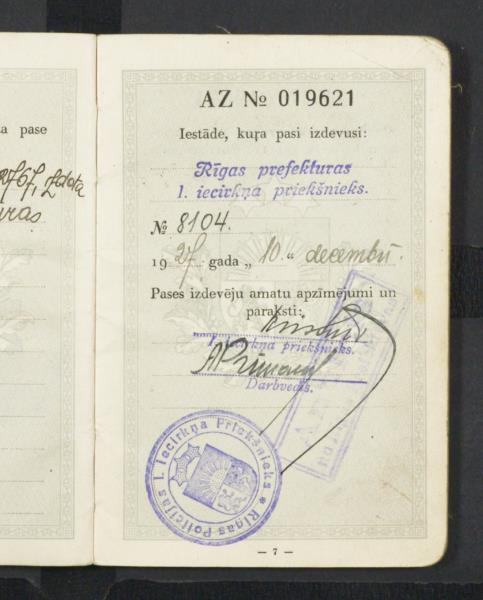 a pase
AZ № 019621
Iestāde, kuŗa pasi izdevusi:
Rīgas prefekturas
1. iecirkņa priekšnieks.
№ 8104.
1927. gada „ 10. “ decembŗ.
Pases izdevēju amatu apzīmējumi un
paraksti:
1. iecirkņa priekšnieks.
Darbvedis.
Rīgas Policijas 1. iecirkņa Priekšnieks
— 7 —